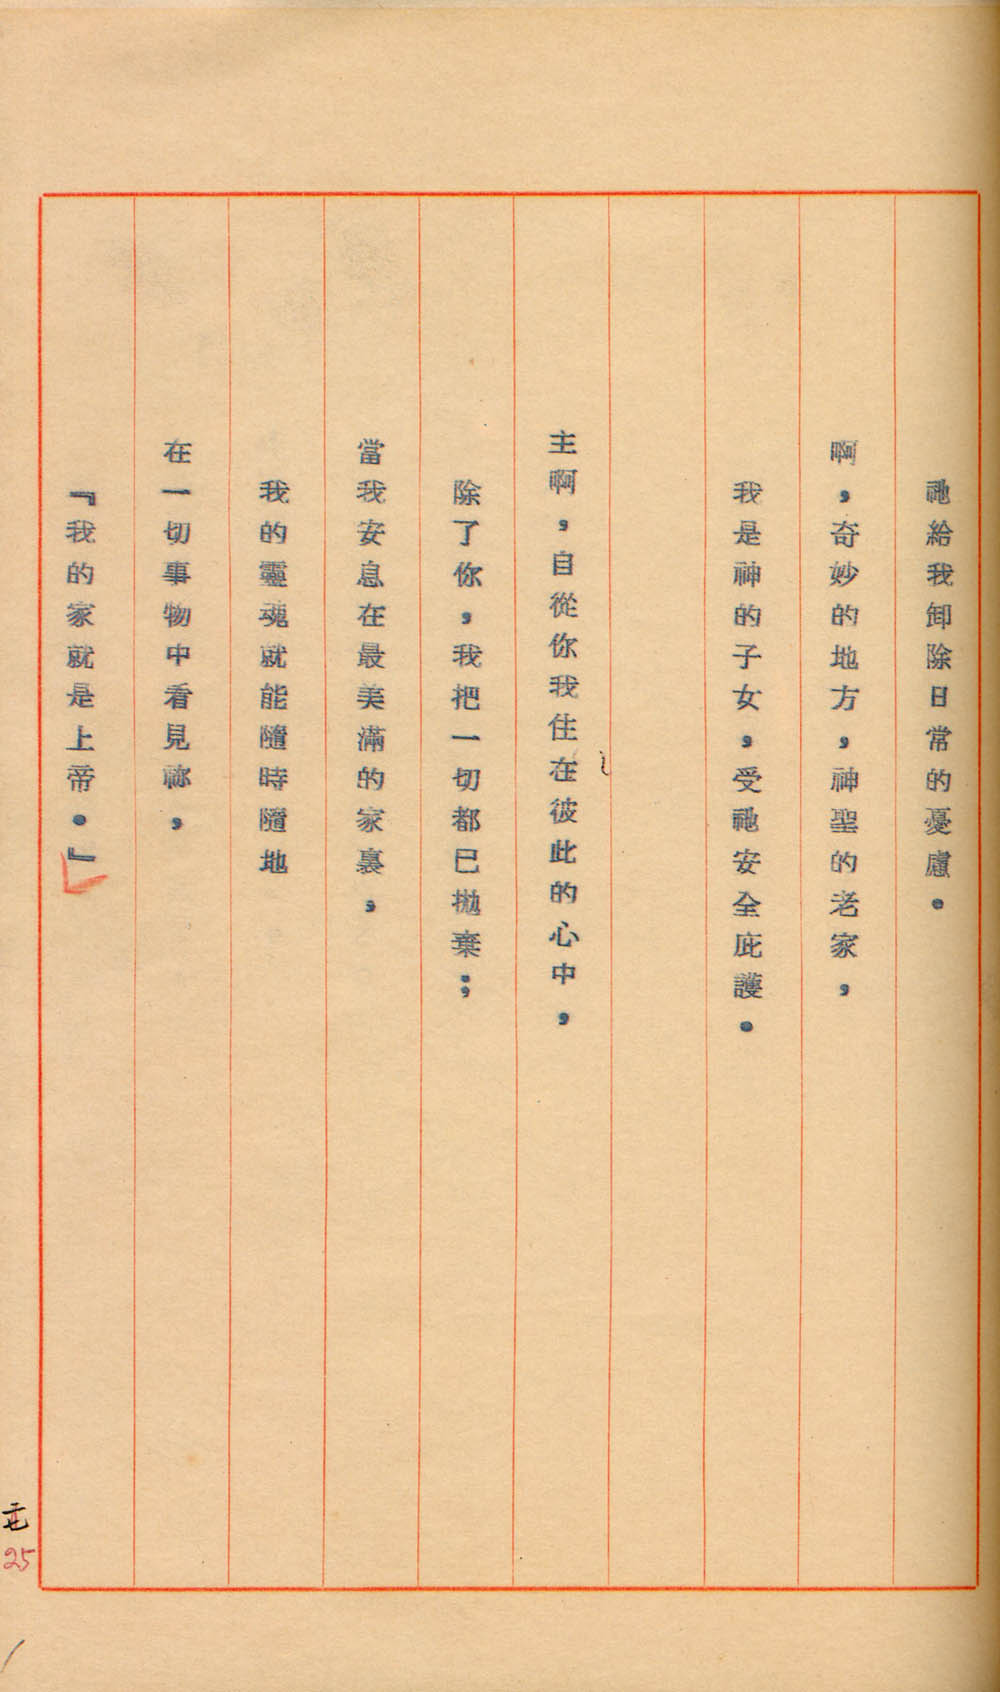 祂給我卸除日常的憂慮。
啊，奇妙的地方，神聖的老家，
我是神的子女，受祂安全庇護。
主啊，自從你我住在彼此的心中，
除了你，我把一切都已拋棄；
當我安息在最美滿的家裏，
我的靈魂就能隨時隨地
在一切事物中看見祢，
『我的家就是上帝。』
25